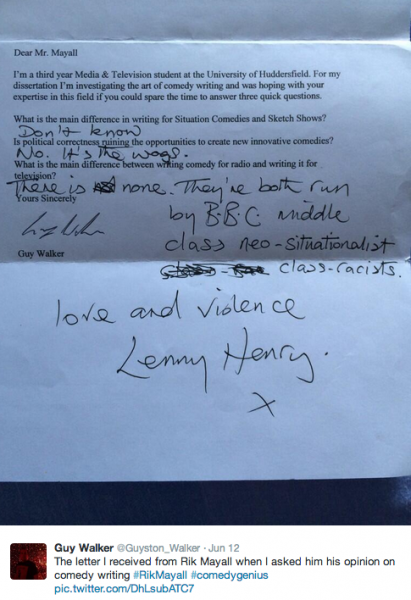 Dear Mr. Mayall
I'm a third year Media & Television student at the University of Huddersfield. For my
dissertation I'm investigating the art of comedy writing and was hoping with your
expertise in this field if you could spare the time to answer three quick questions.
What is the main difference in writing for Situation Comedies and Sketch Shows?
Don't know
Is political correctness ruining the opportunities to create new innovative comedies?
No. It's the wogs.
What is the main difference between writing comedy for radio and writing it for
television?
There is none. They're both run
Yours Sincerely
by B.B.C. middle
class neo-situationalist
Guy Walker
class-racists.
love and violence
Lenny Henry.
x
Guy Walker @Guyston_Walker · Jun 12
The letter I received from Rik Mayall when I asked him his opinion on
comedy writing #RikMayall #comedygenius
pic.twitter.com/DhLsubATC7